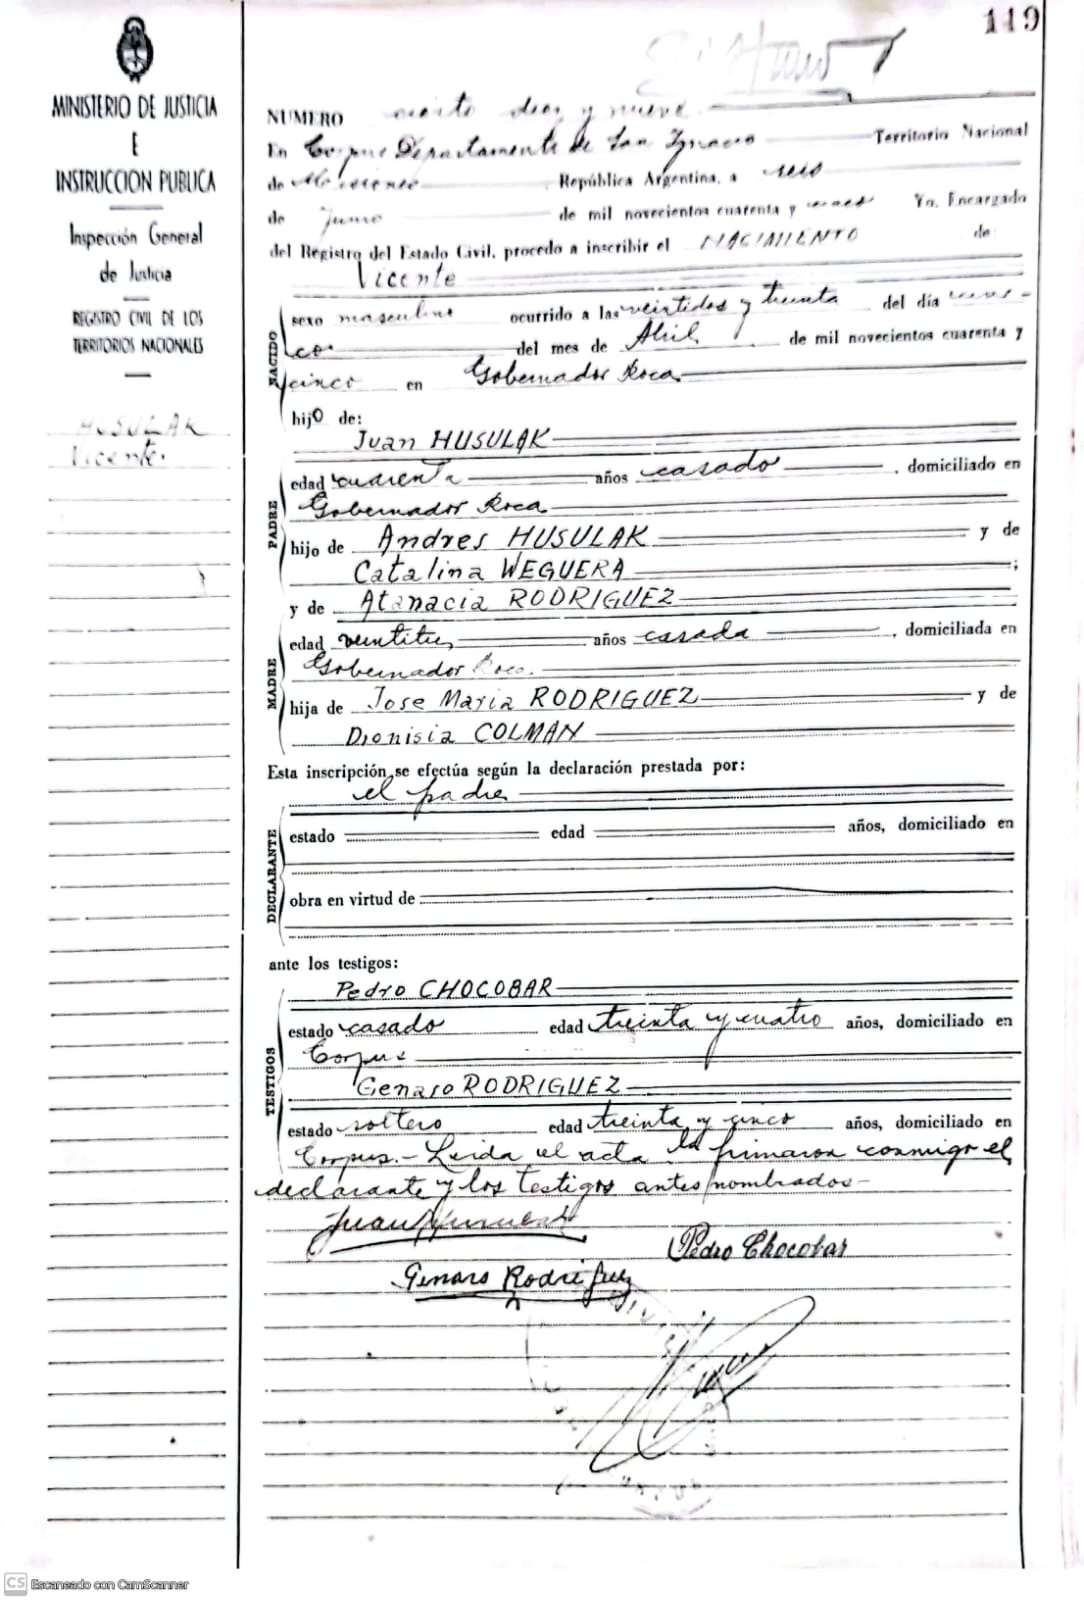 119
MINISTERIO DE JUSTICIA
E
INSTRUCCION PUBLICA
Inspección General
de Justicia
REGISTRO CIVIL DE LOS
TERRITORIOS NACIONALES
HUSULAK
Vicente.
NUMERO ciento diez y nueve
En Corpus Departamento de San Ignacio Territorio Nacional
de Misiones República Argentina, a seis
de Junio de mil novecientos cuarenta y Yo, Encargado
del Registro del Estado Civil, procedo a inscribir el NACIMIENTO de
Vicente
NACIDO
sexo masculino ocurrido a las veintidos y treinta del día
co del mes de Abril de mil novecientos cuarenta y
cinco en Gobernador Roca
hijo de:
Juan HUSULAK
PADRE
edad cuarenta años casado , domiciliado en
Gobernador Roca
hijo de Andres HUSULAK y de
Catalina WEGUERA ;
y de Atanacia RODRIGUEZ
MADRE
edad años casada , domiciliada en
Gobernador Roca.
hija de Jose Maria RODRIGUEZ y de
Dionisia COLMAN
Esta inscripción se efectúa según la declaración prestada por:
el padre
DECLARANTE
estado edad años, domiciliado en
obra en virtud de
ante los testigos:
Pedro CHOCOBAR
TESTIGOS
estado casado edad treinta y cuatro años, domiciliado en
Corpus
Genaro RODRIGUEZ
estado soltero edad treinta y cinco años, domiciliado en
Corpus.- Leida el acta la firmaron conmigo el
declarante y los testigos antes nombrados-
Juan
Pedro Chocobar
Genaro Rodriguez
CS Escaneado con CamScanner